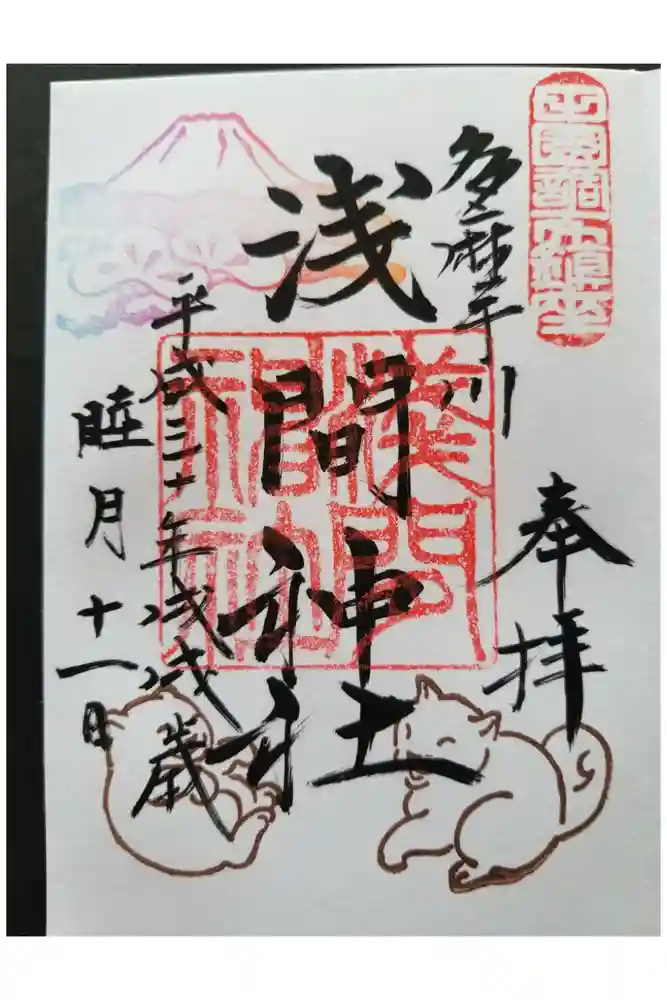 田園調布鎮座
奉拝
多摩川
浅間神社
平成三十年戊戌歳
睦月十一日